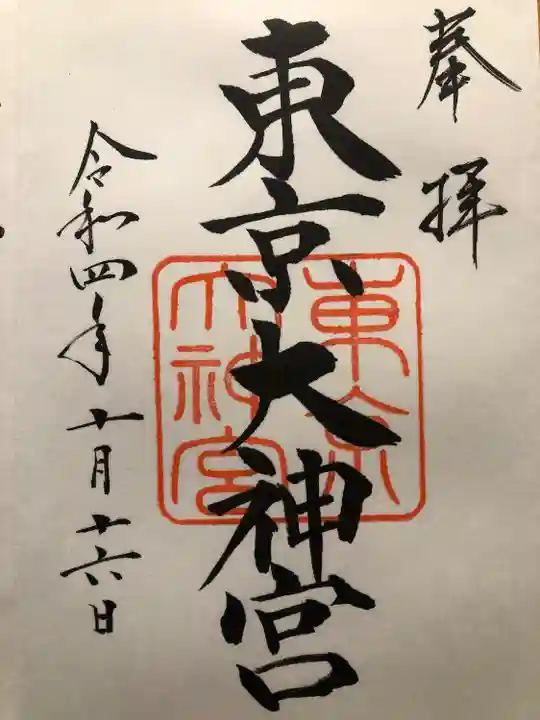 奉拝
東京大神宮
東京
大神宮
令和四年十月十六日